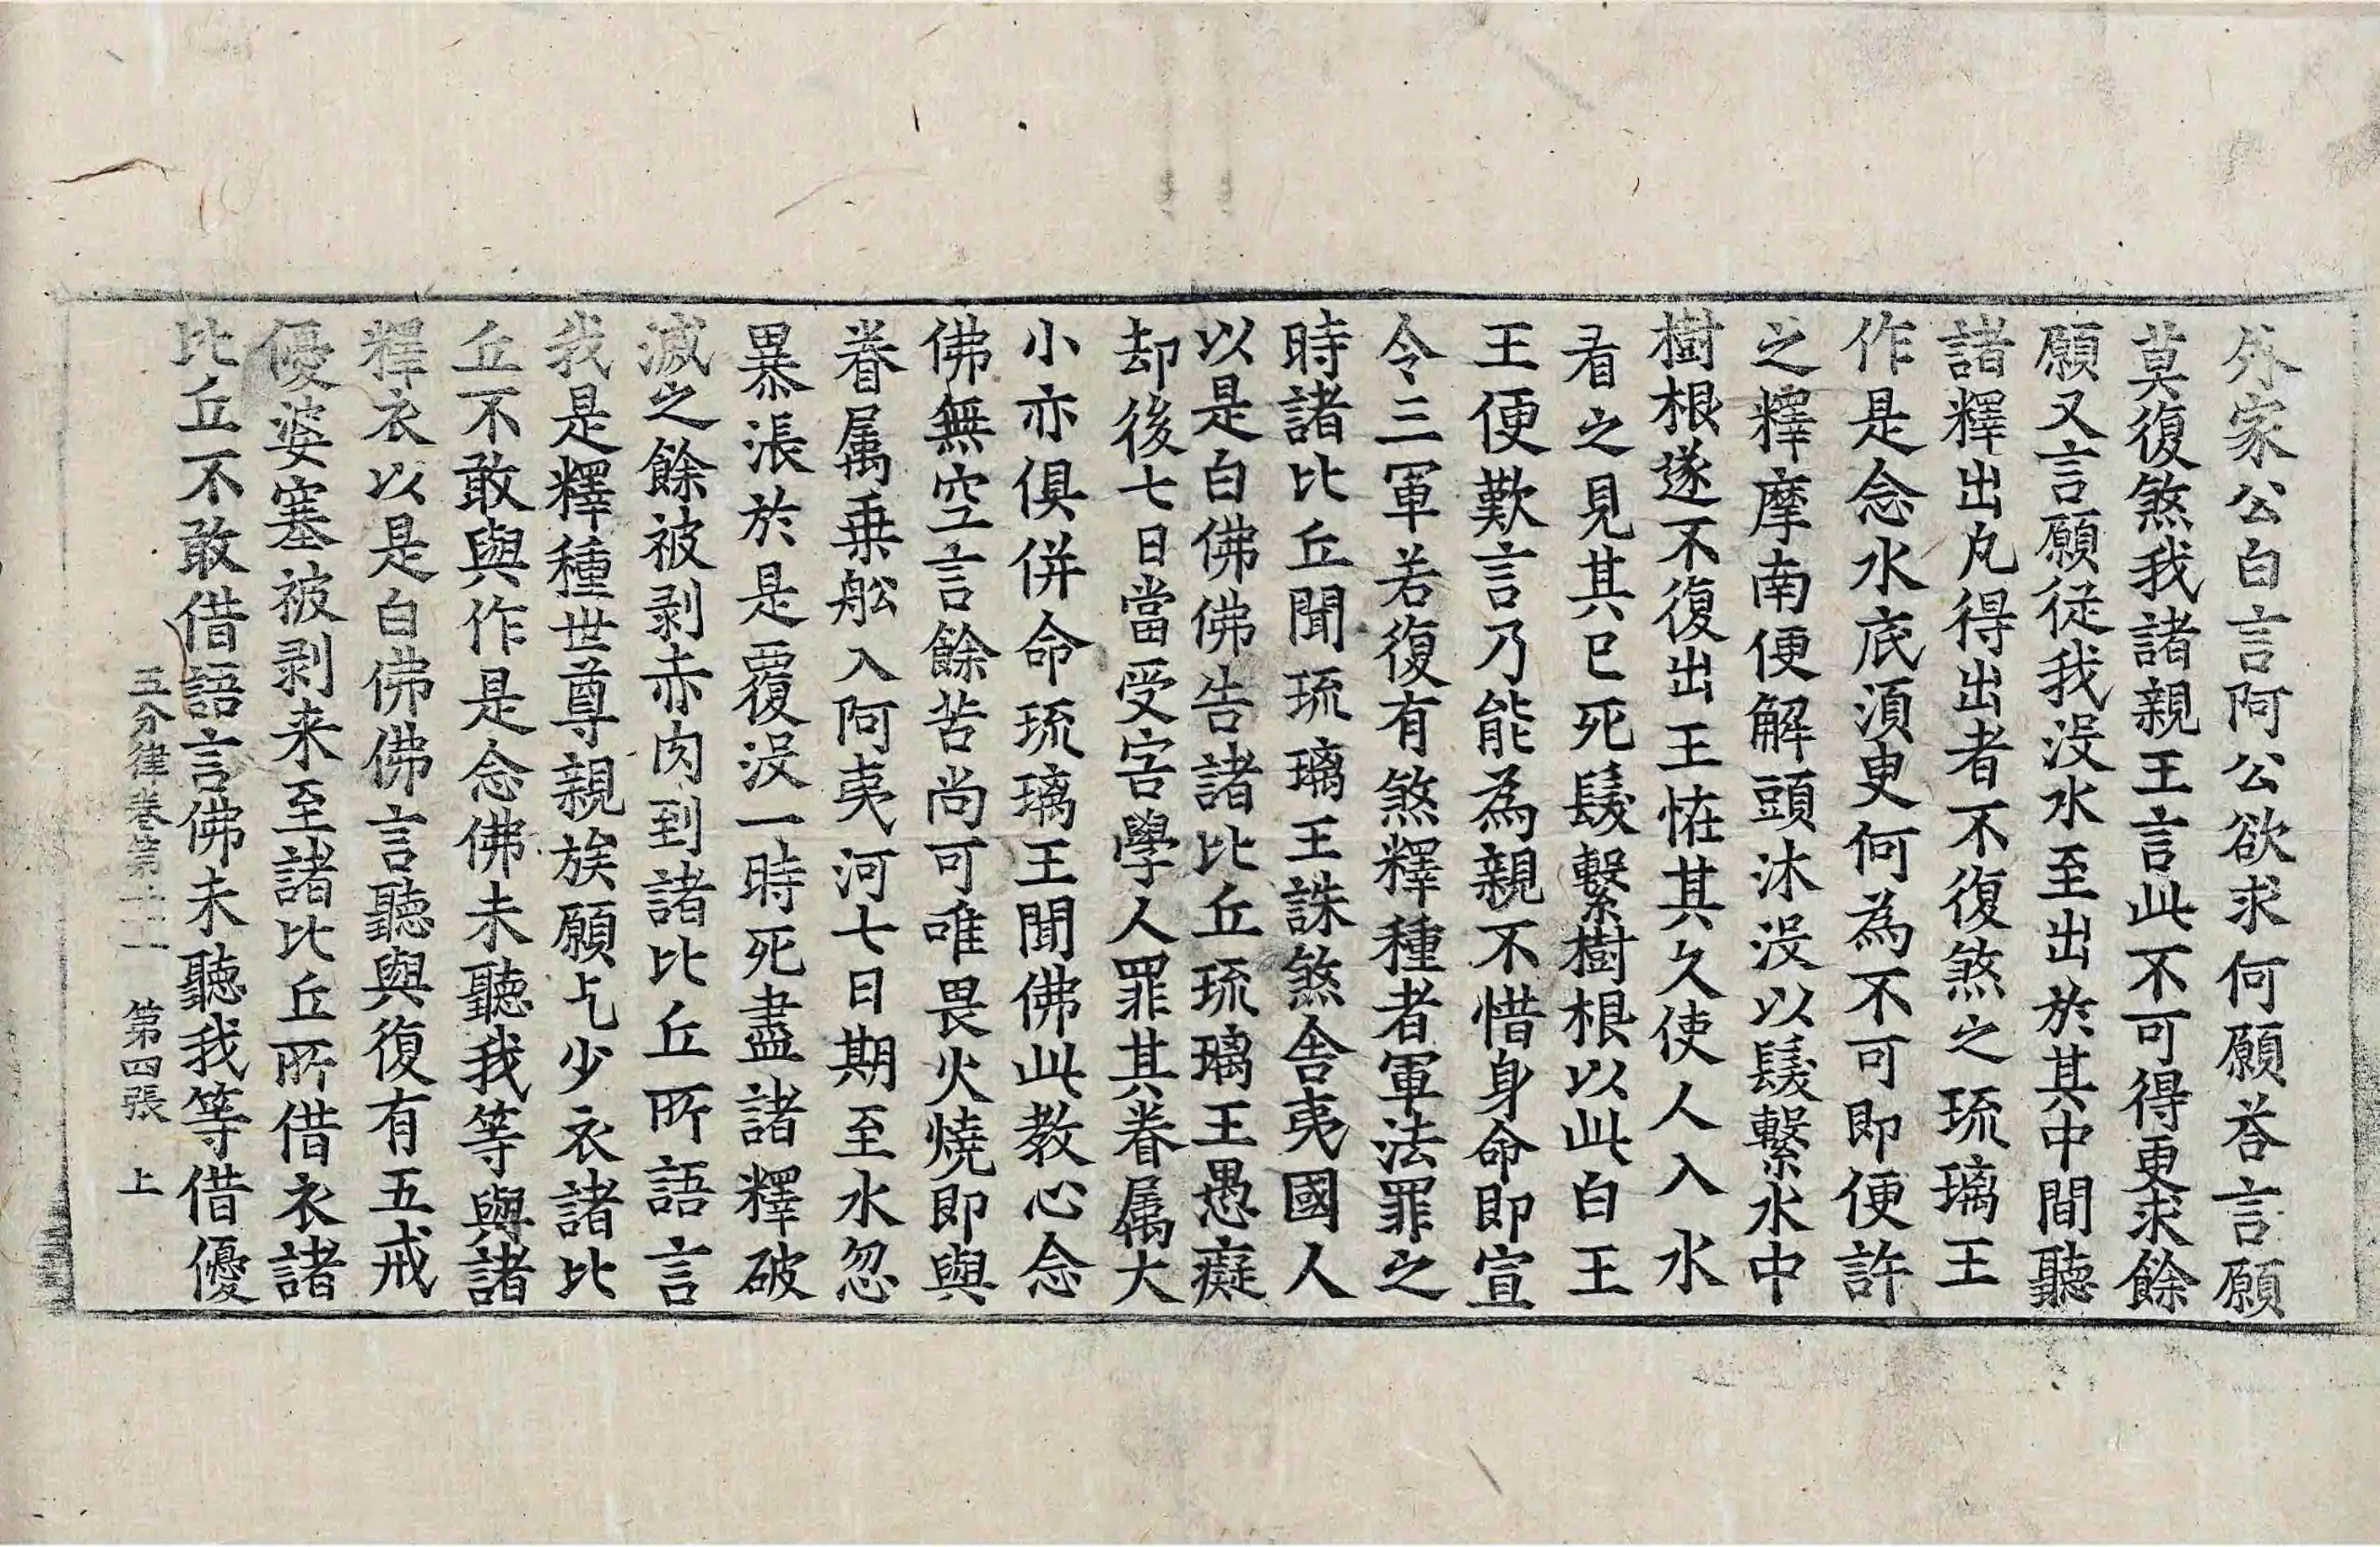 外家公白言阿公欲求何願荅言願
莫復煞我諸親王言此不可得更求餘
願又言願從我没水至出於其中間聽
諸釋出凡得出者不復煞之琉璃王
作是念水底湏臾何為不可即便許
之釋摩南便解頭沐没以䰅繫水中
樹根遂不復出王恠其久使人入水
看之見其已死䰅繫樹根以此白王
王便歎言乃能為親不惜身命即宣
令三軍若復有煞釋種者軍法罪之
時諸比丘聞琉璃王誅煞舎夷國人
以是白佛佛告諸比丘琉璃王愚癡
却後七日當受害學人罪其眷属大
小亦俱併命琉璃王聞佛此教心念
佛無空言餘苦尚可唯畏火燒即與
眷属乗舩入阿夷河七日期至水忽
暴漲於是覆没一時死盡諸釋破
滅之餘被剥赤肉到諸比丘所語言
我是釋種世尊親族願乞少衣諸比
丘不敢與作是念佛未聽我等與諸
釋衣以是白佛佛言聽與復有五戒
優婆塞被剥来至諸比丘所借衣諸
比丘不敢借語言佛未聽我等借優
五分律卷第二十一 第四張 上